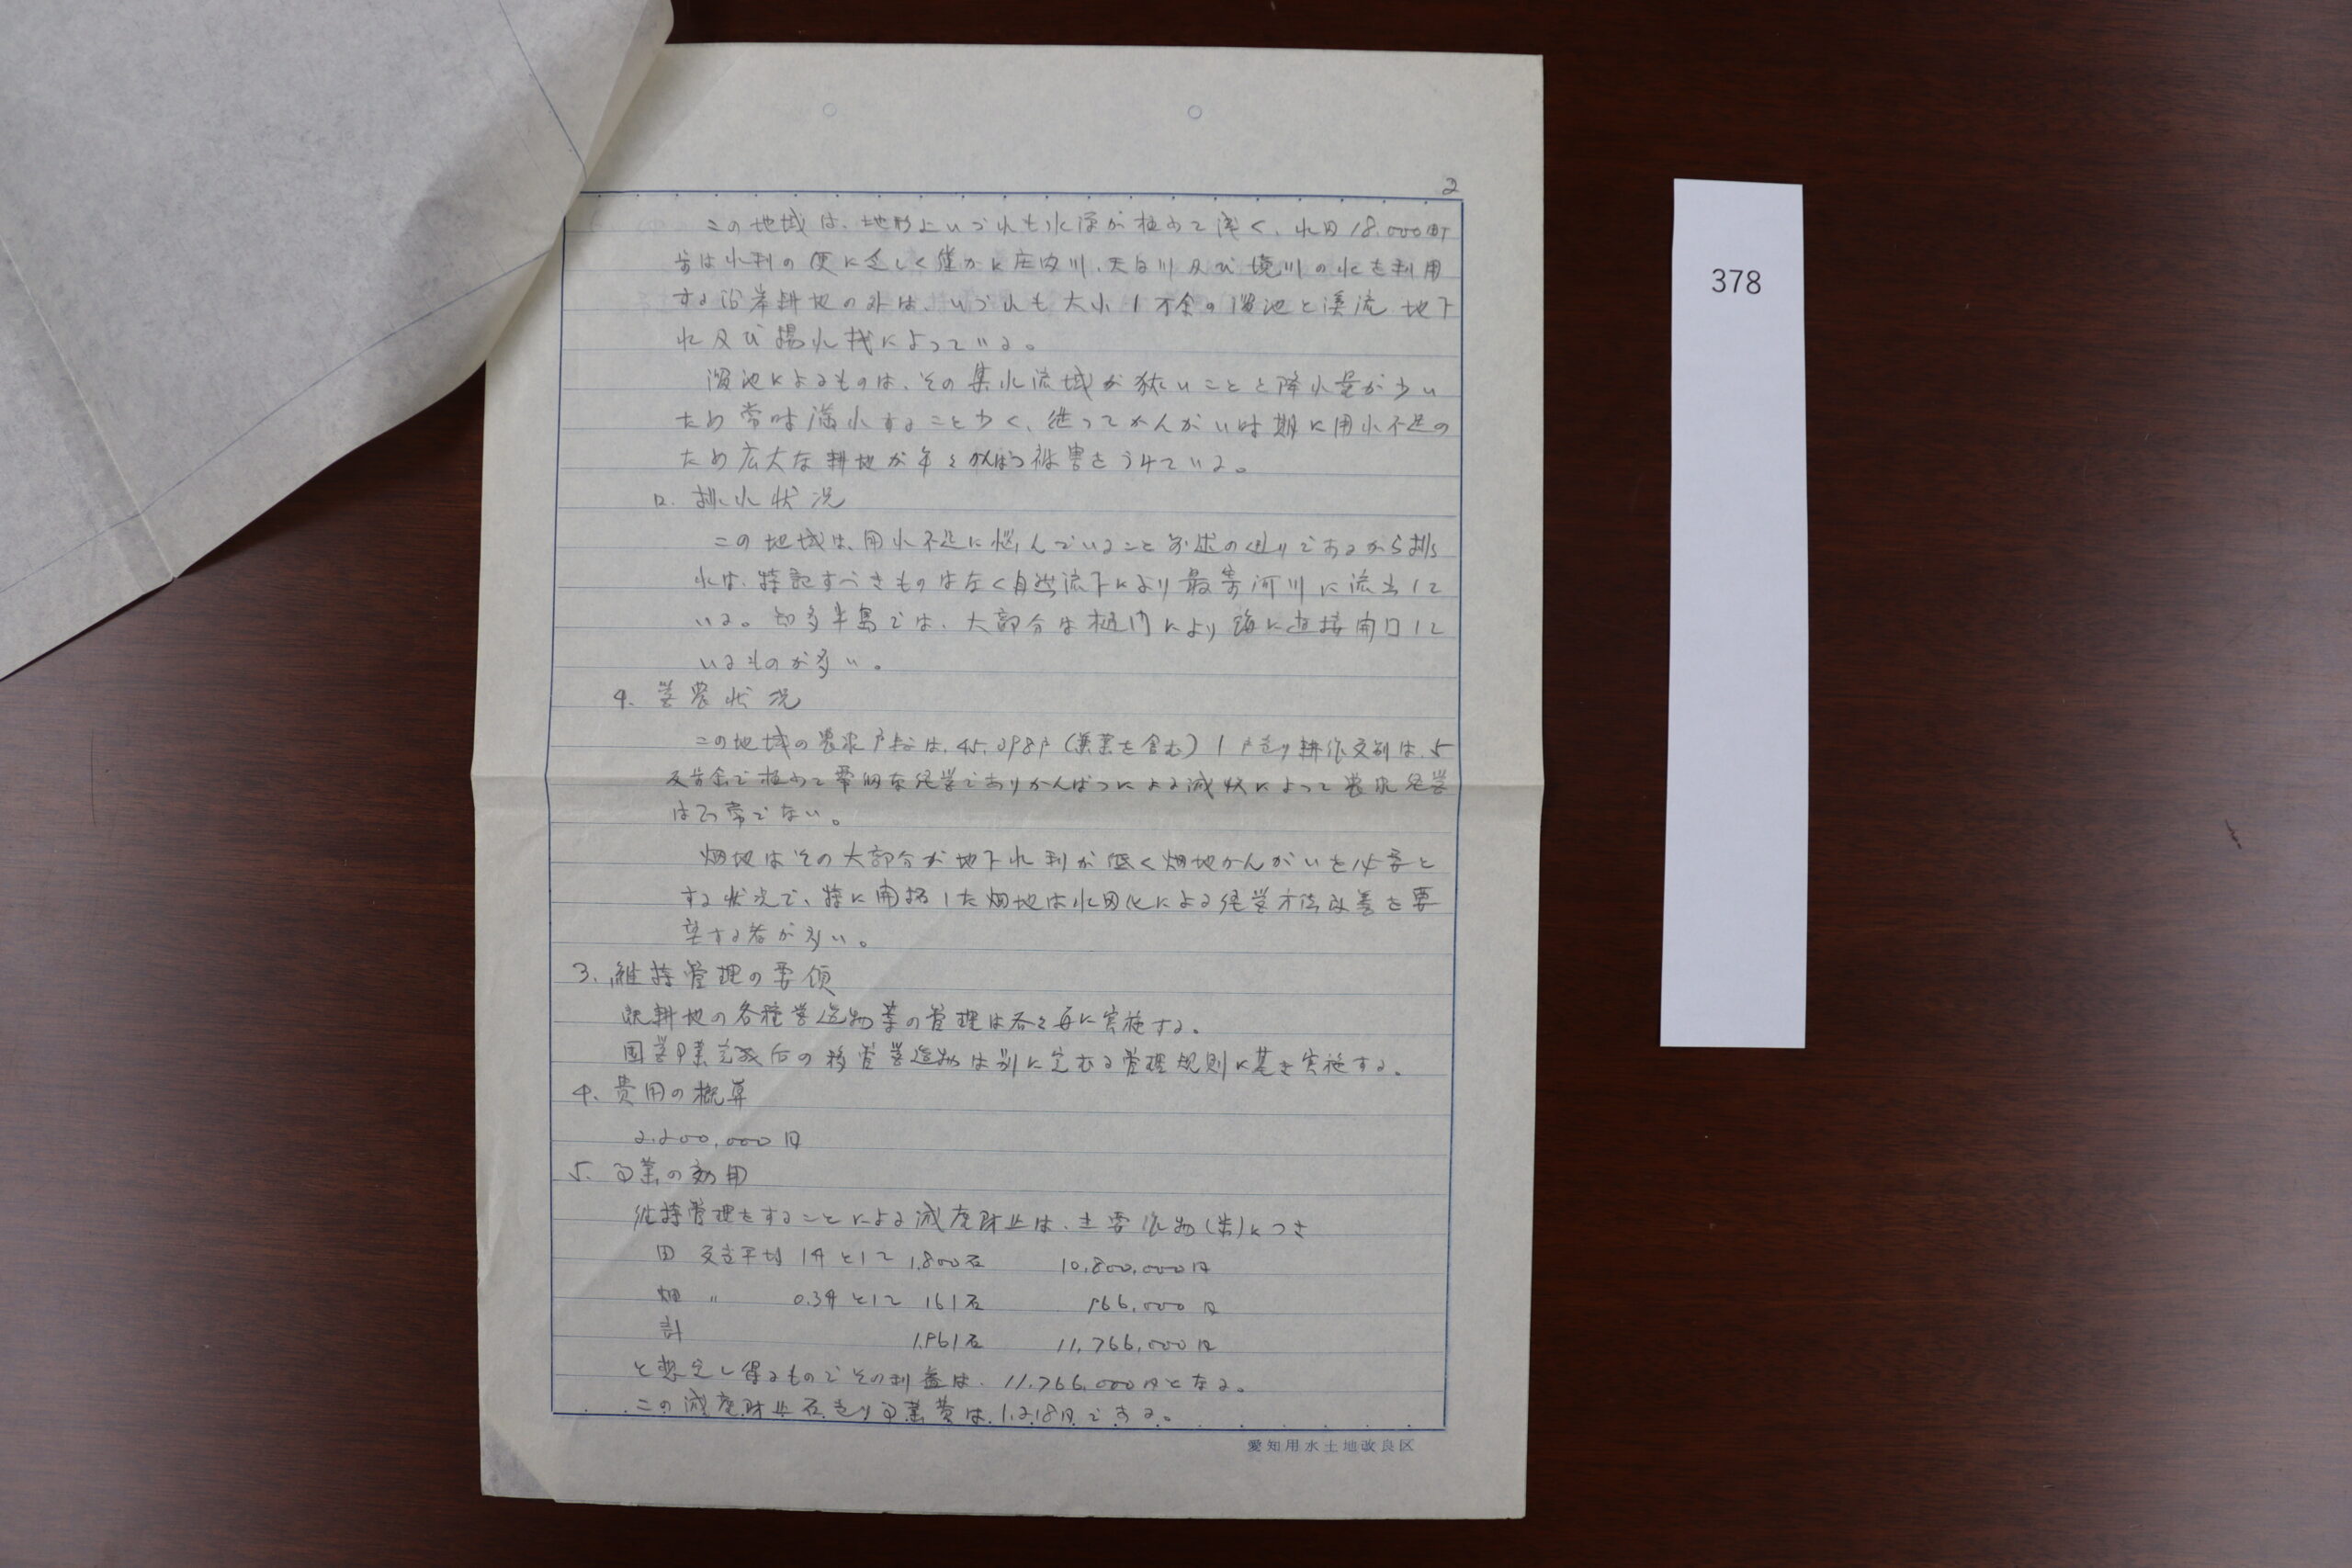 2
この地域は、地形上いづれも水源が極めて浅く、水田18,000町
歩は水利の便に乏しく僅かに庄内川、天白川及び境川の水を利用
する沿岸耕地の外は、いづれも大小1万余の溜池と渓流、地下
水及び揚水機によっている。
溜池によるものは、その集水流域が狭いことと降水量が少い
ため常時満水すること少く、従ってかんがい時期に用水不足の
ため広大な耕地が年々かんばつ被害をうけている。
ロ. 排水状況
この地域は、用水不足に悩んでいること前述の通りであるから排
水は、特記すべきものはなく自然流下により最寄河川に流出して
いる。知多半島では、大部分は樋門により海に直接開口して
いるものが多い。
4. 営農状況
この地域の農家戸数は、45,098戸(兼業を含む)1戸当り耕作反別は、5
反歩余で極めて零細な経営でありかんばつによる減収によって農家経営
は正常でない。
畑地はその大部分が地下水利が低く畑地かんがいを必要と
する状況で、特に開拓した畑地は水田化による経営方法改善を要
望する者が多い。
3. 維持管理の要領
既耕地の各種営造物等の管理は各々毎に実施する。
国営事業完成后の移管営造物は別に定むる管理規則に基き実施する。
4. 費用の概算
2,200,000円
5. 事業の効用
維持管理をすることによる減産防止は、主要作物(米)につき
田 反当平均 1升として 1,800石 10,800,000円
畑 〃 0.3升として 161石 966,000円
計 1,961石 11,766,000円
と想定し得るものでその利益は、11,766,000円となる。
この減産防止石当り事業費は、1,218円である。
愛知用水土地改良区
378